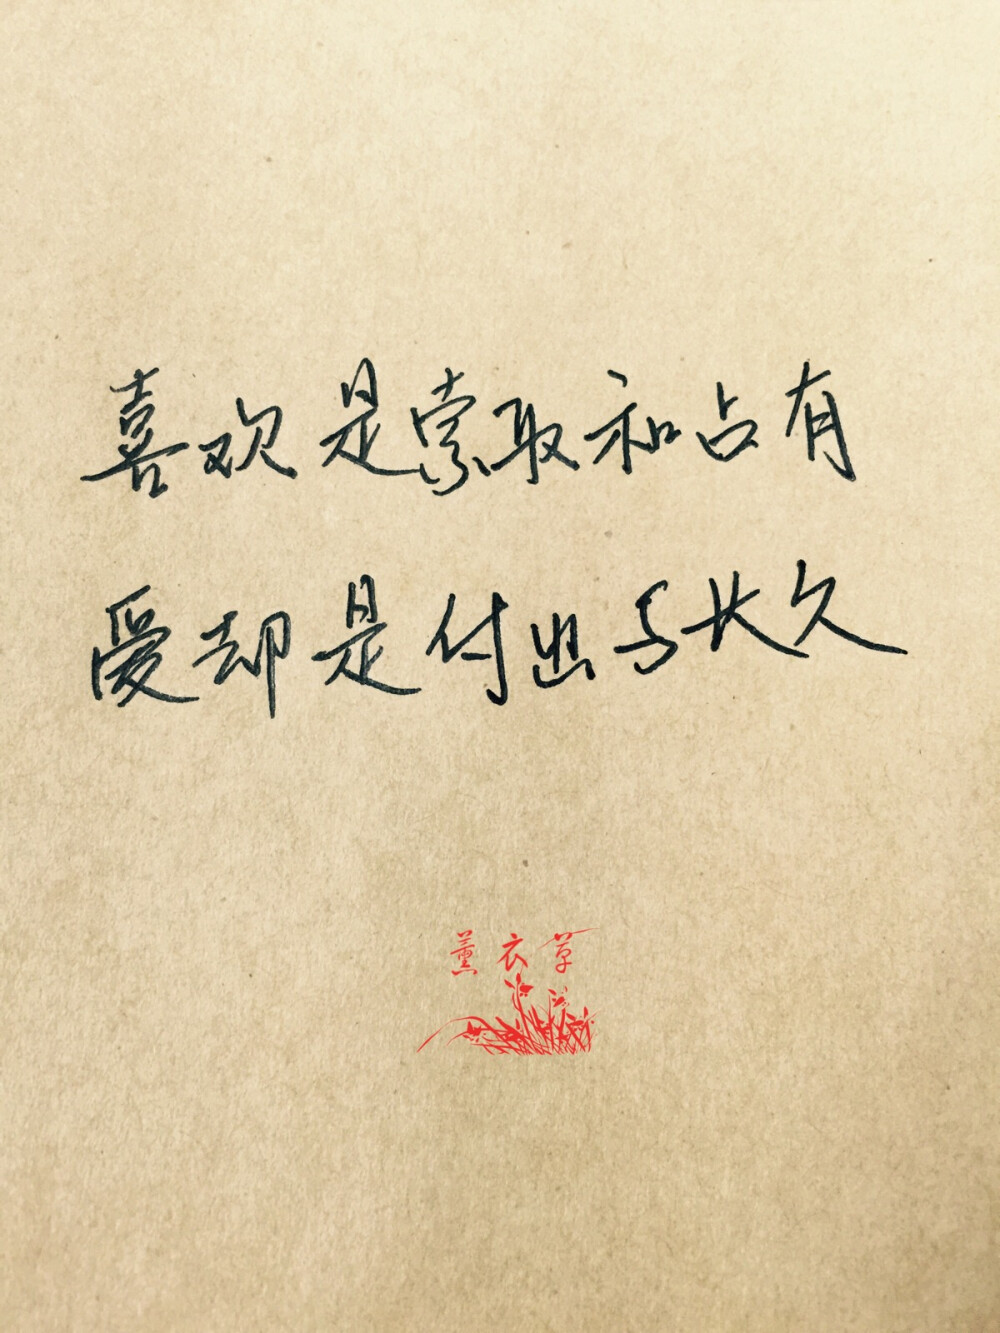 喜欢是索取和占有
爱却是付出与长久
薰衣草